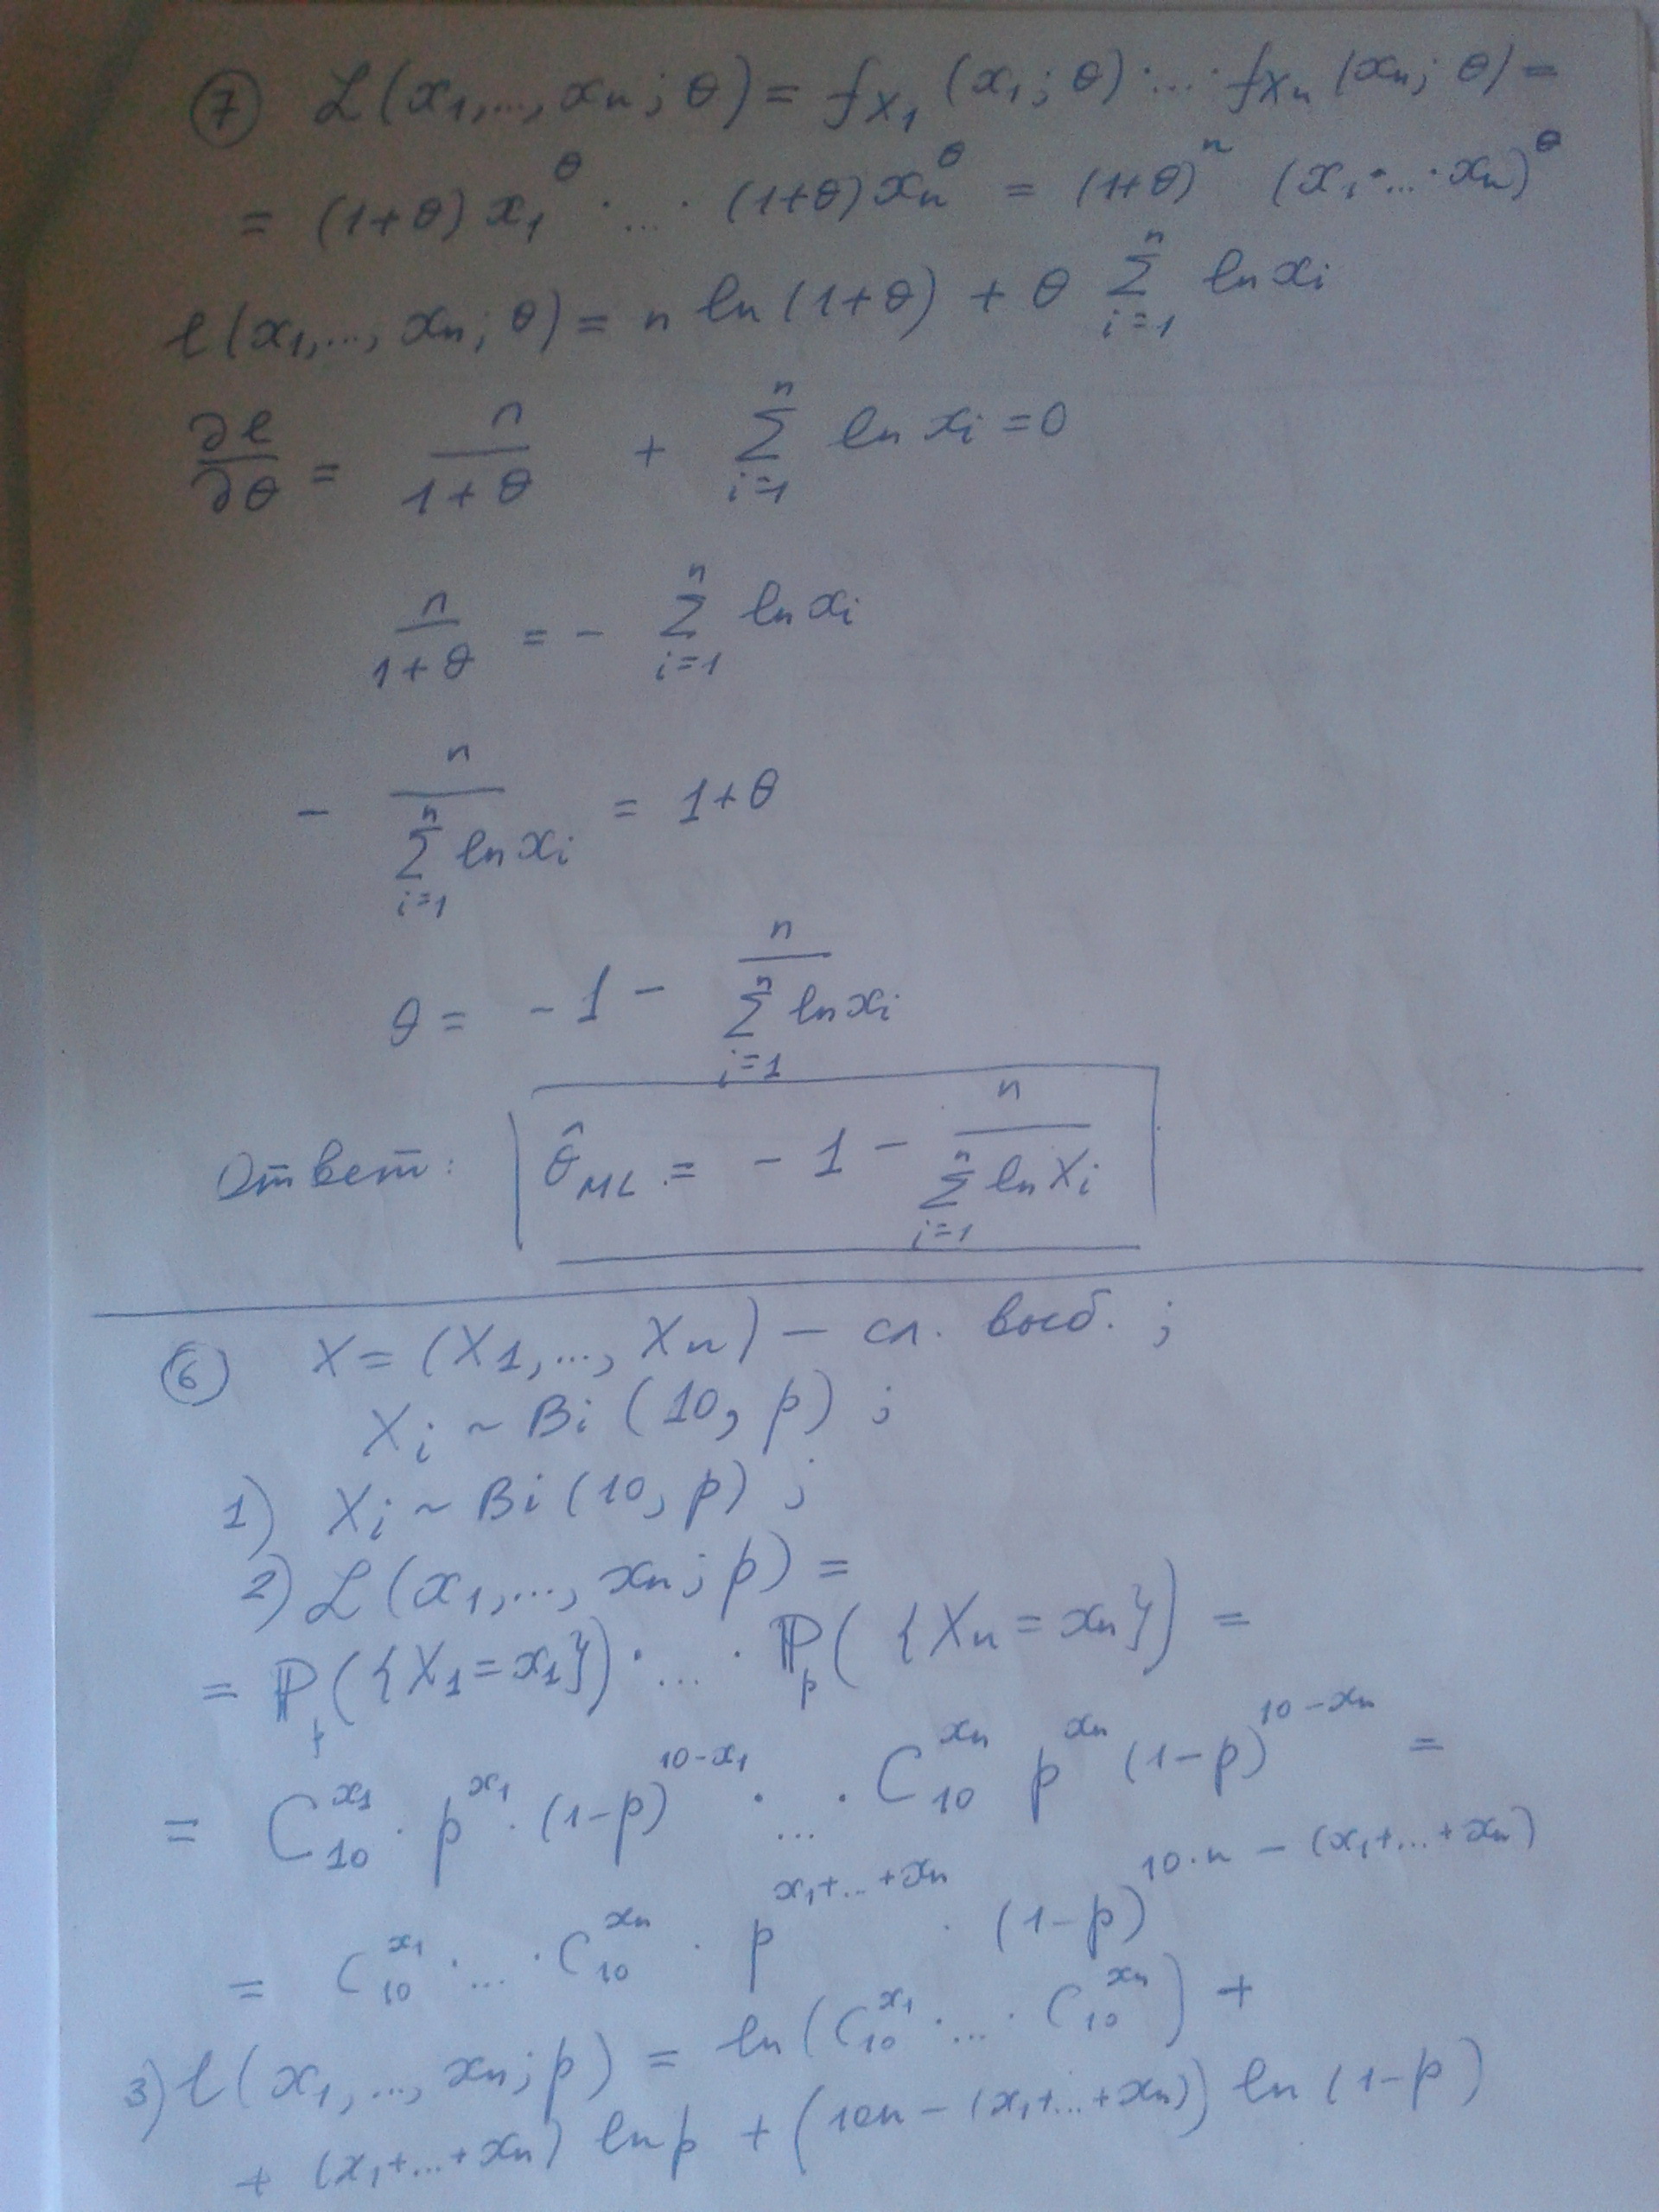 ⑦ ℒ(x₁,...,xₙ; θ) = f_X₁(x₁; θ)·...·f_Xₙ(xₙ; θ) =
= (1+θ) x₁^θ · ... · (1+θ) xₙ^θ = (1+θ)^n (x₁·...·xₙ)^θ
ℓ(x₁,..., xₙ; θ) = n ln(1+θ) + θ ∑_{i=1}^{n} ln xᵢ
∂ℓ/∂θ = n/(1+θ) + ∑_{i=1}^{n} ln xᵢ = 0
n/(1+θ) = - ∑_{i=1}^{n} ln xᵢ
- n/(∑_{i=1}^{n} ln xᵢ) = 1+θ
θ = -1 - n/(∑_{i=1}^{n} ln xᵢ)
Ответ: θ̂_ML = -1 - n/(∑_{i=1}^{n} ln Xᵢ)
⑥ X = (X₁,..., Xₙ) — сл. выб. ;
Xᵢ ~ Bi (10, p) ;
1) Xᵢ ~ Bi (10, p) ;
2) ℒ(x₁,..., xₙ; p) =
= ℙ_p({X₁=x₁})·...·ℙ_p({Xₙ=xₙ}) =
= C_10^{x₁} · p^{x₁} · (1-p)^{10-x₁} · ... · C_10^{xₙ} p^{xₙ} (1-p)^{10-xₙ} =
= C_10^{x₁} · ... · C_10^{xₙ} · p^{x₁+...+xₙ} · (1-p)^{10·n - (x₁+...+xₙ)}
3) ℓ(x₁,..., xₙ; p) = ln(C_10^{x₁} · ... · C_10^{xₙ}) +
+ (x₁+...+xₙ) ln p + (10n - (x₁+...+xₙ)) ln (1-p)